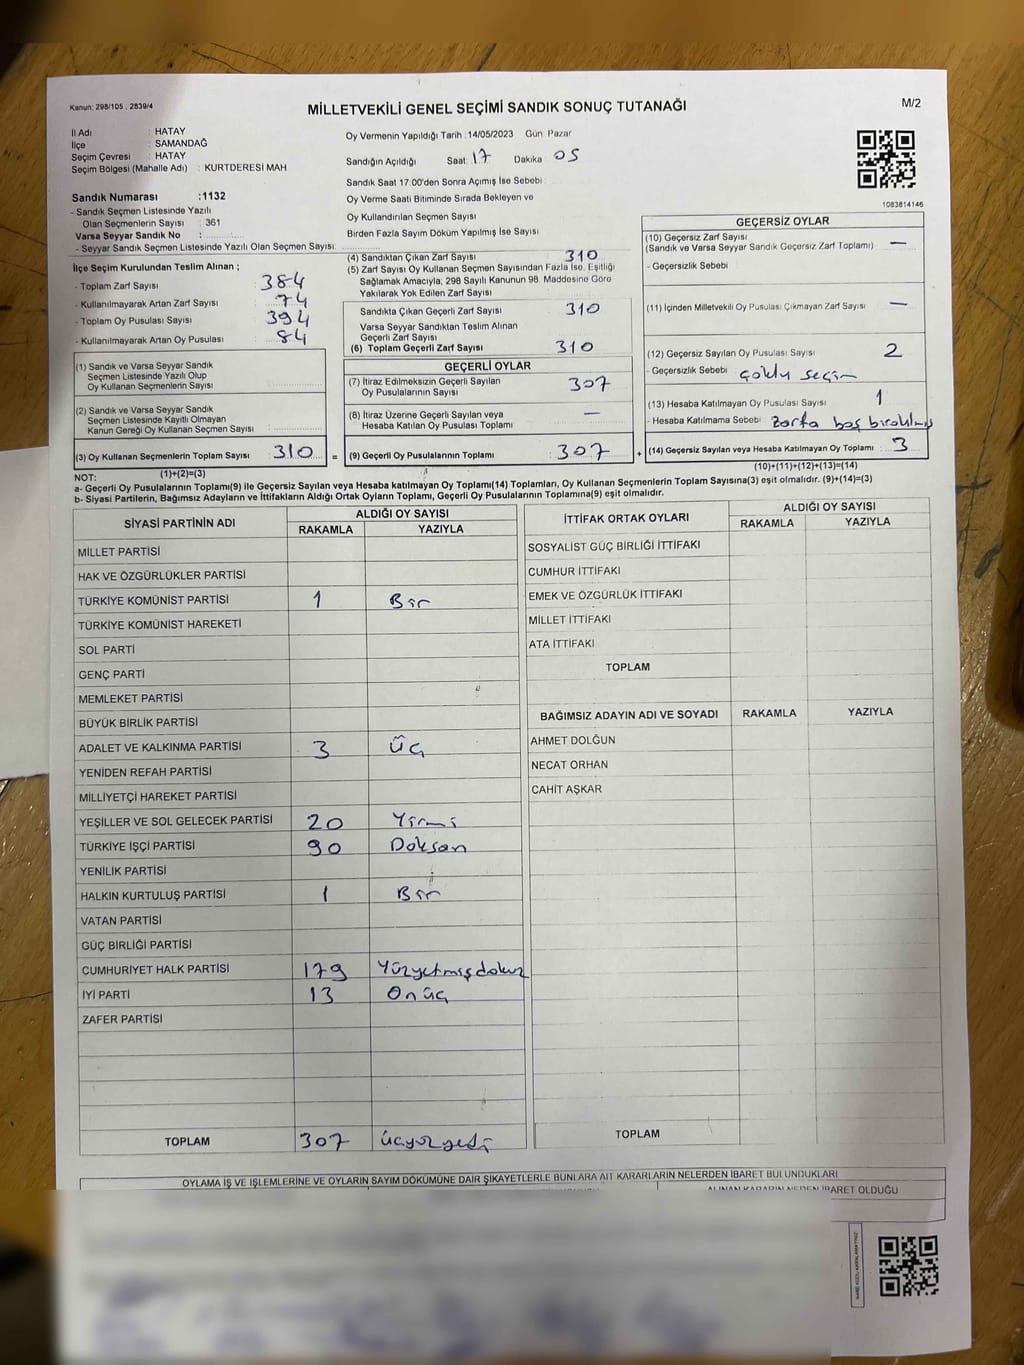 Kanun: 298/105 , 2839/4
MİLLETVEKİLİ GENEL SEÇİMİ SANDIK SONUÇ TUTANAĞI
M/2
İl Adı : HATAY
İlçe : SAMANDAĞ
Seçim Çevresi : HATAY
Seçim Bölgesi (Mahalle Adı) : KURTDERESİ MAH
Sandık Numarası :1132
- Sandık Seçmen Listesinde Yazılı
Olan Seçmenlerin Sayısı : 361
Varsa Seyyar Sandık No :
- Seyyar Sandık Seçmen Listesinde Yazılı Olan Seçmen Sayısı:
Oy Vermenin Yapıldığı Tarih :14/05/2023 Gün: Pazar
Sandığın Açıldığı Saat: 17 Dakika 05
Sandık Saat 17:00'den Sonra Açımış İse Sebebi:
Oy Verme Saati Bitiminde Sırada Bekleyen ve
Oy Kullandırılan Seçmen Sayısı
Birden Fazla Sayım Döküm Yapılmış İse Sayısı
1083814146
İlçe Seçim Kurulundan Teslim Alınan ;
- Toplam Zarf Sayısı 384
- Kullanılmayarak Artan Zarf Sayısı 74
- Toplam Oy Pusulası Sayısı 394
- Kullanılmayarak Artan Oy Pusulası 84
(1) Sandık ve Varsa Seyyar Sandık
Seçmen Listesinde Yazılı Olup
Oy Kullanan Seçmenlerin Sayısı
(2) Sandık ve Varsa Seyyar Sandık
Seçmen Listesinde Kayıtlı Olmayan
Kanun Gereği Oy Kullanan Seçmen Sayısı:
(3) Oy Kullanan Seçmenlerin Toplam Sayısı 310 =
(1)+(2)=(3)
(4) Sandıktan Çıkan Zarf Sayısı 310
(5) Zarf Sayısı Oy Kullanan Seçmen Sayısından Fazla İse, Eşitliği
Sağlamak Amacıyla; 298 Sayılı Kanunun 98. Maddesine Göre
Yakılarak Yok Edilen Zarf Sayısı
Sandıkta Çıkan Geçerli Zarf Sayısı 310
Varsa Seyyar Sandıktan Teslim Alınan
Geçerli Zarf Sayısı
(6) Toplam Geçerli Zarf Sayısı 310
GEÇERLİ OYLAR
(7) İtiraz Edilmeksizin Geçerli Sayılan
Oy Pusulalarının Sayısı 307
(8) İtiraz Üzerine Geçerli Sayılan veya
Hesaba Katılan Oy Pusulası Toplamı —
(9) Geçerli Oy Pusulalarının Toplamı 307 +
GEÇERSİZ OYLAR
(10) Geçersiz Zarf Sayısı
(Sandık ve Varsa Seyyar Sandık Geçersiz Zarf Toplamı) —
- Geçersizlik Sebebi
(11) İçinden Milletvekili Oy Pusulası Çıkmayan Zarf Sayısı —
(12) Geçersiz Sayılan Oy Pusulası Sayısı 2
- Geçersizlik Sebebi çoklu seçim
(13) Hesaba Katılmayan Oy Pusulası Sayısı 1
- Hesaba Katılmama Sebebi zarfa boş bırakılmış
(14) Geçersiz Sayılan veya Hesaba Katılmayan Oy Toplamı 3
(10)+(11)+(12)+(13)=(14)
NOT:
a- Geçerli Oy Pusulalarının Toplamı(9) ile Geçersiz Sayılan veya Hesaba katılmayan Oy Toplamı(14) Toplamları, Oy Kullanan Seçmenlerin Toplam Sayısına(3) eşit olmalıdır. (9)+(14)=(3)
b- Siyasi Partilerin, Bağımsız Adayların ve İttifakların Aldığı Ortak Oyların Toplamı, Geçerli Oy Pusulalarının Toplamına(9) eşit olmalıdır.
SİYASİ PARTİNİN ADI ALDIĞI OY SAYISI
RAKAMLA YAZIYLA
MİLLET PARTİSİ
HAK VE ÖZGÜRLÜKLER PARTİSİ
TÜRKİYE KOMÜNİST PARTİSİ 1 Bir
TÜRKİYE KOMÜNİST HAREKETİ
SOL PARTİ
GENÇ PARTİ
MEMLEKET PARTİSİ
BÜYÜK BİRLİK PARTİSİ
ADALET VE KALKINMA PARTİSİ 3 Üç
YENİDEN REFAH PARTİSİ
MİLLİYETÇİ HAREKET PARTİSİ
YEŞİLLER VE SOL GELECEK PARTİSİ 20 Yirmi
TÜRKİYE İŞÇİ PARTİSİ 90 Doksan
YENİLİK PARTİSİ
HALKIN KURTULUŞ PARTİSİ 1 Bir
VATAN PARTİSİ
GÜÇ BİRLİĞİ PARTİSİ
CUMHURİYET HALK PARTİSİ 179 Yüzyetmişdokuz
İYİ PARTİ 13 Onüç
ZAFER PARTİSİ
TOPLAM 307 üçyüzyedi
İTTİFAK ORTAK OYLARI ALDIĞI OY SAYISI
RAKAMLA YAZIYLA
SOSYALİST GÜÇ BİRLİĞİ İTTİFAKI
CUMHUR İTTİFAKI
EMEK VE ÖZGÜRLÜK İTTİFAKI
MİLLET İTTİFAKI
ATA İTTİFAKI
TOPLAM
BAĞIMSIZ ADAYIN ADI VE SOYADI RAKAMLA YAZIYLA
AHMET DOLĞUN
NECAT ORHAN
CAHİT AŞKAR
TOPLAM
OYLAMA İŞ VE İŞLEMLERİNE VE OYLARIN SAYIM DÖKÜMÜNE DAİR ŞİKAYETLERLE BUNLARA AİT KARARLARIN NELERDEN İBARET BULUNDUKLARI
ALINAN KARARIN NEDEN İBARET OLDUĞU